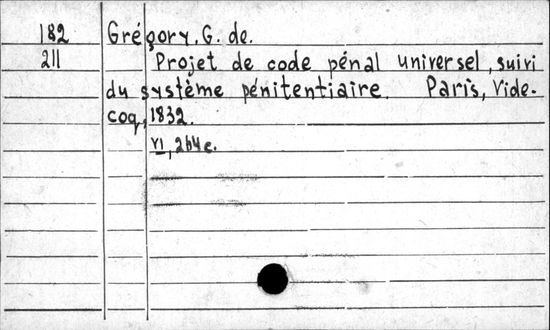 182 Grégory, G. de.
211 Projet de code pénal universel, suivi
du système pénitentiaire. Paris, Vide-
coq, 1832.
VI, 264 c.